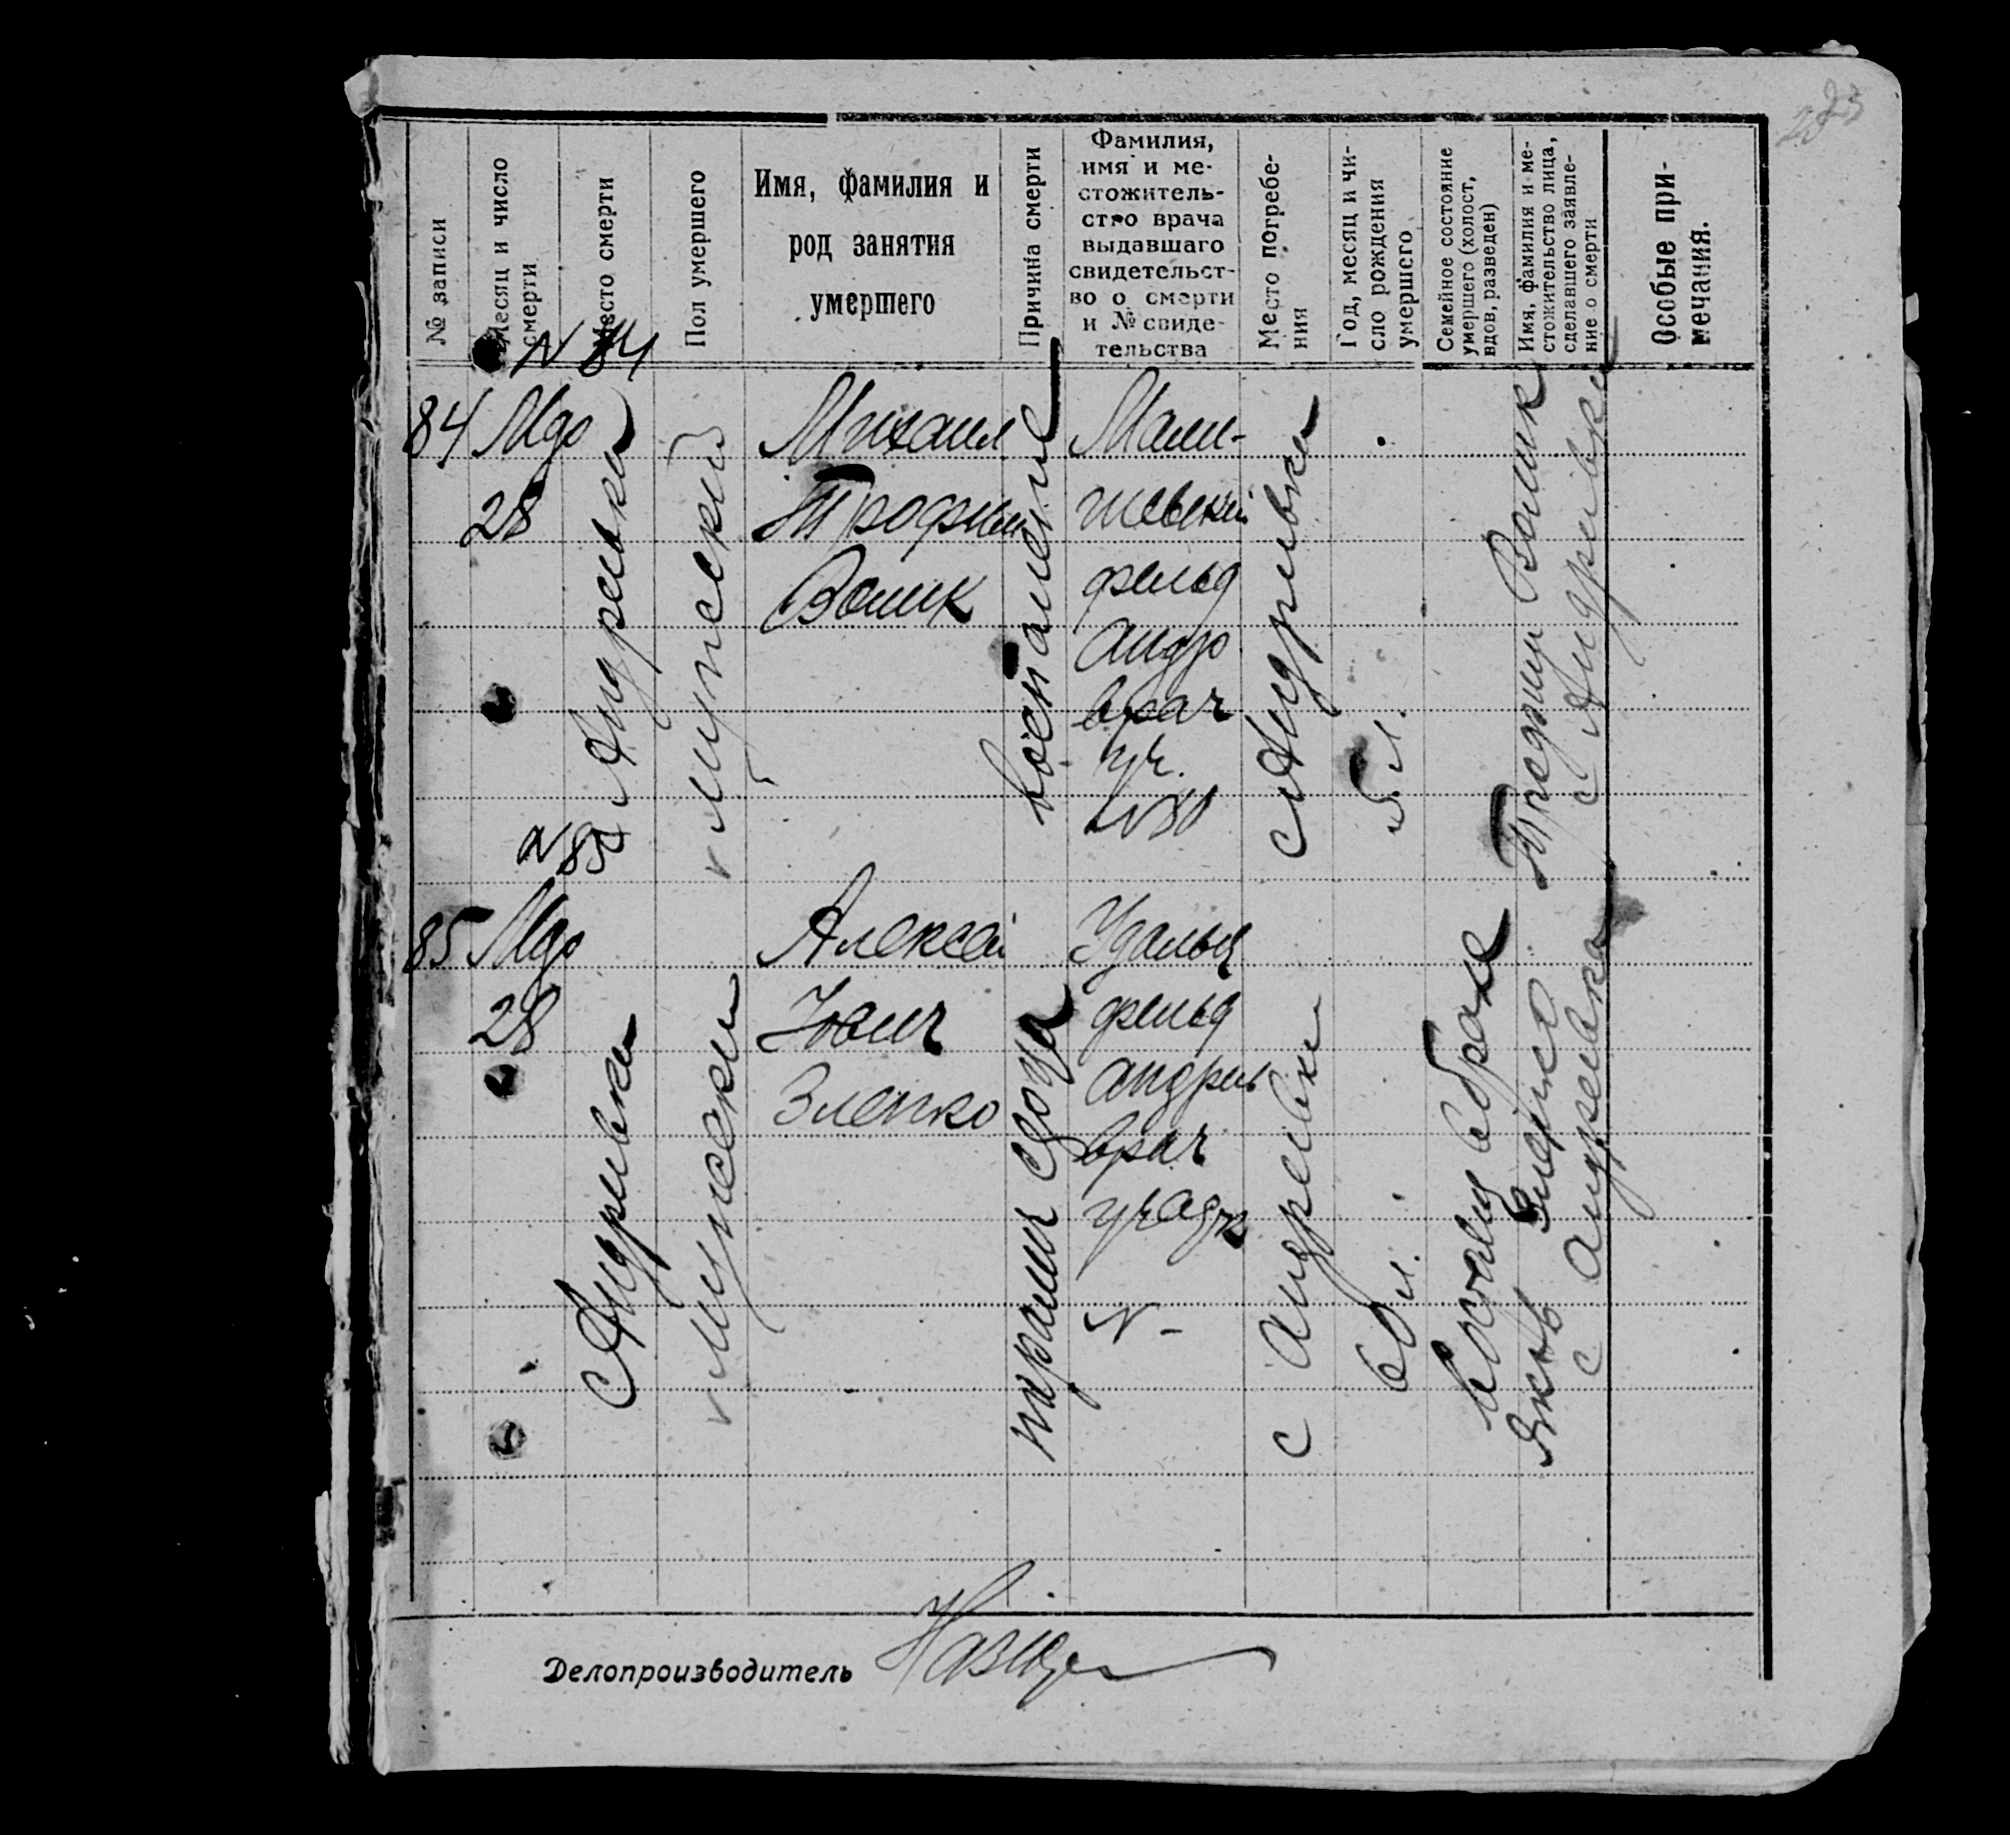 № записи
Месяц и число
смерти
Место смерти
Пол умершего
Имя, фамилия и
род занятия
умершего
Причина смерти
Фамилия,
имя и ме-
стожитель-
ство врача
выдавшаго
свидетельст-
во о смерти
и № свиде-
тельства
Место погребе-
ния
Год, месяц и чи-
сло рождения
умершего
Семейное состояние
умершего (холост,
вдов, разведен)
Имя, фамилия и ме-
стожительство лица,
сделавшего заявле-
ние о смерти
Особые при-
мечания.
N 84
84
28
Андреевка
мужеский
Михаил
Трофим
Волик
воспаление
фельд
андр
врач
уч.
N80
с Андреевка
5 л.
Трофим Волик
с Андреевки
N 85
85
28
с Андреевка
мужески
Алексей
Зленко
фельд
андреев
врач
N -
с Андреевки
60 л.
в браке
Яков Зленко
с Андреевка
Делопроизводитель